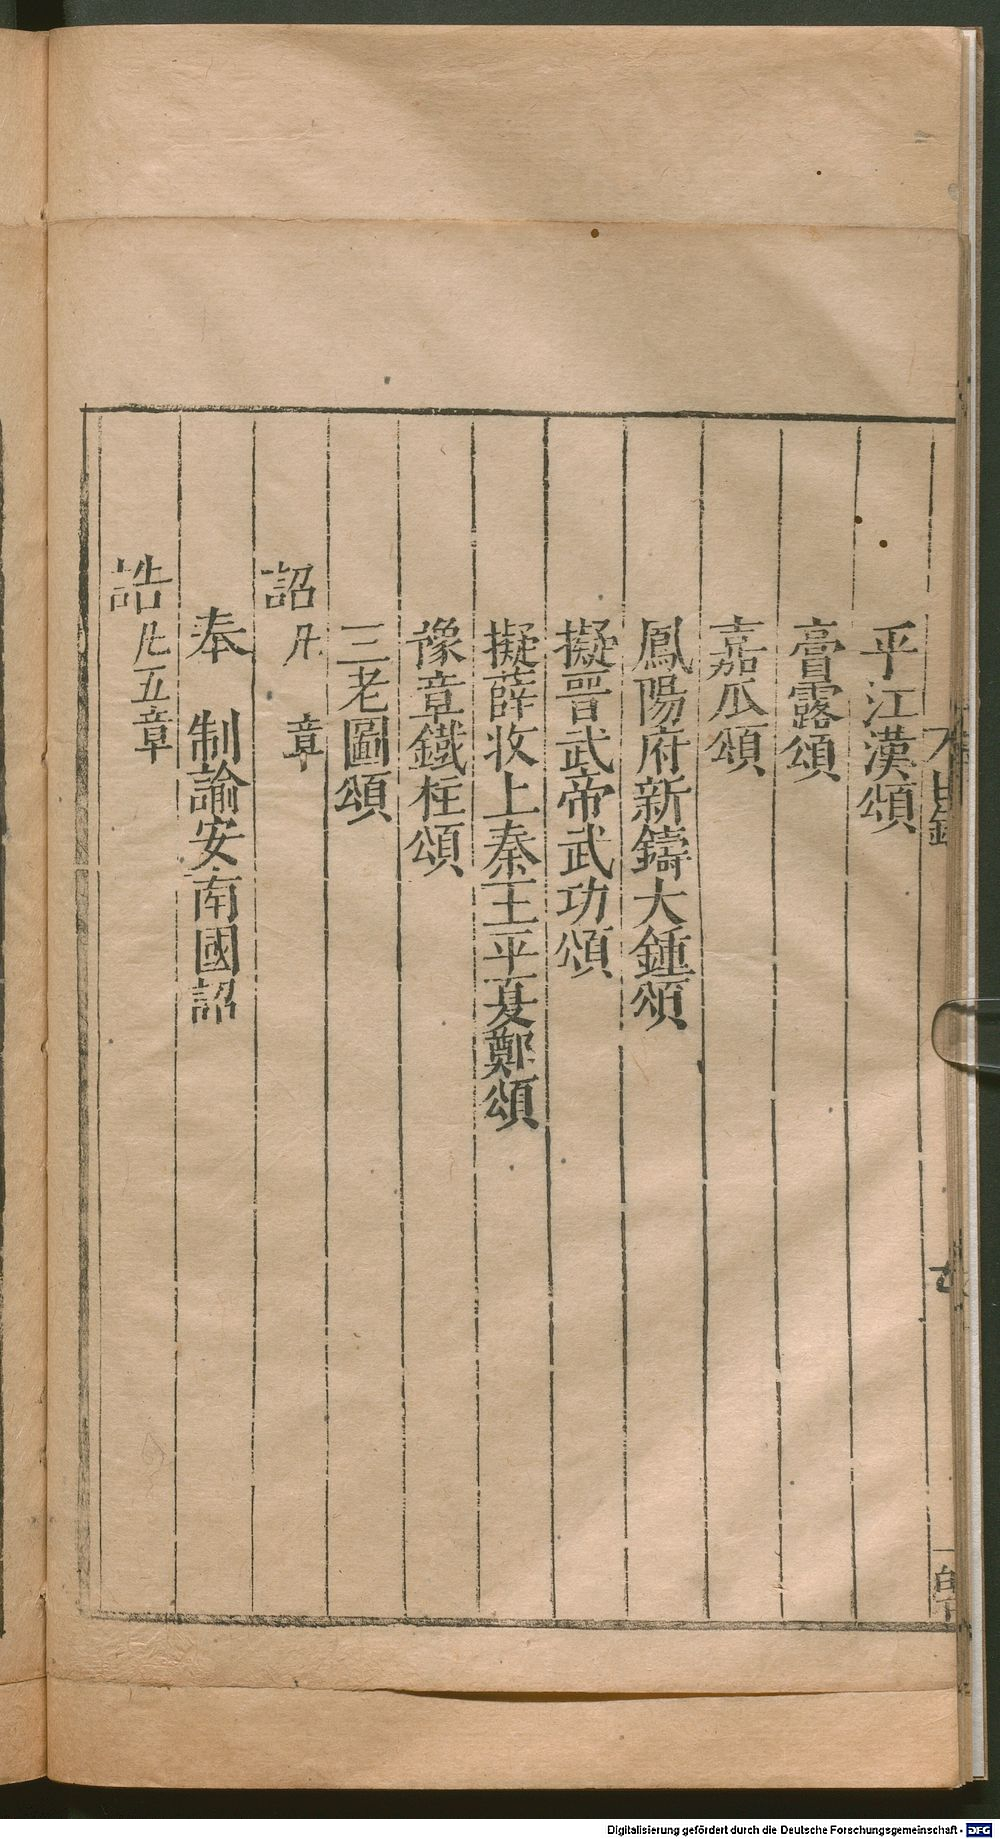 平江漢頌
膏露頌
嘉瓜頌
鳳陽府新鑄大鍾頌
擬晋武帝武功頌
擬薛收上秦王平夏鄭頌
豫章鐵柱頌
三老圖頌
詔 凡 章
奉 制諭安南國詔
誥 凡五章
Digitalisierung gefördert durch die Deutsche Forschungsgemeinschaft - DFG